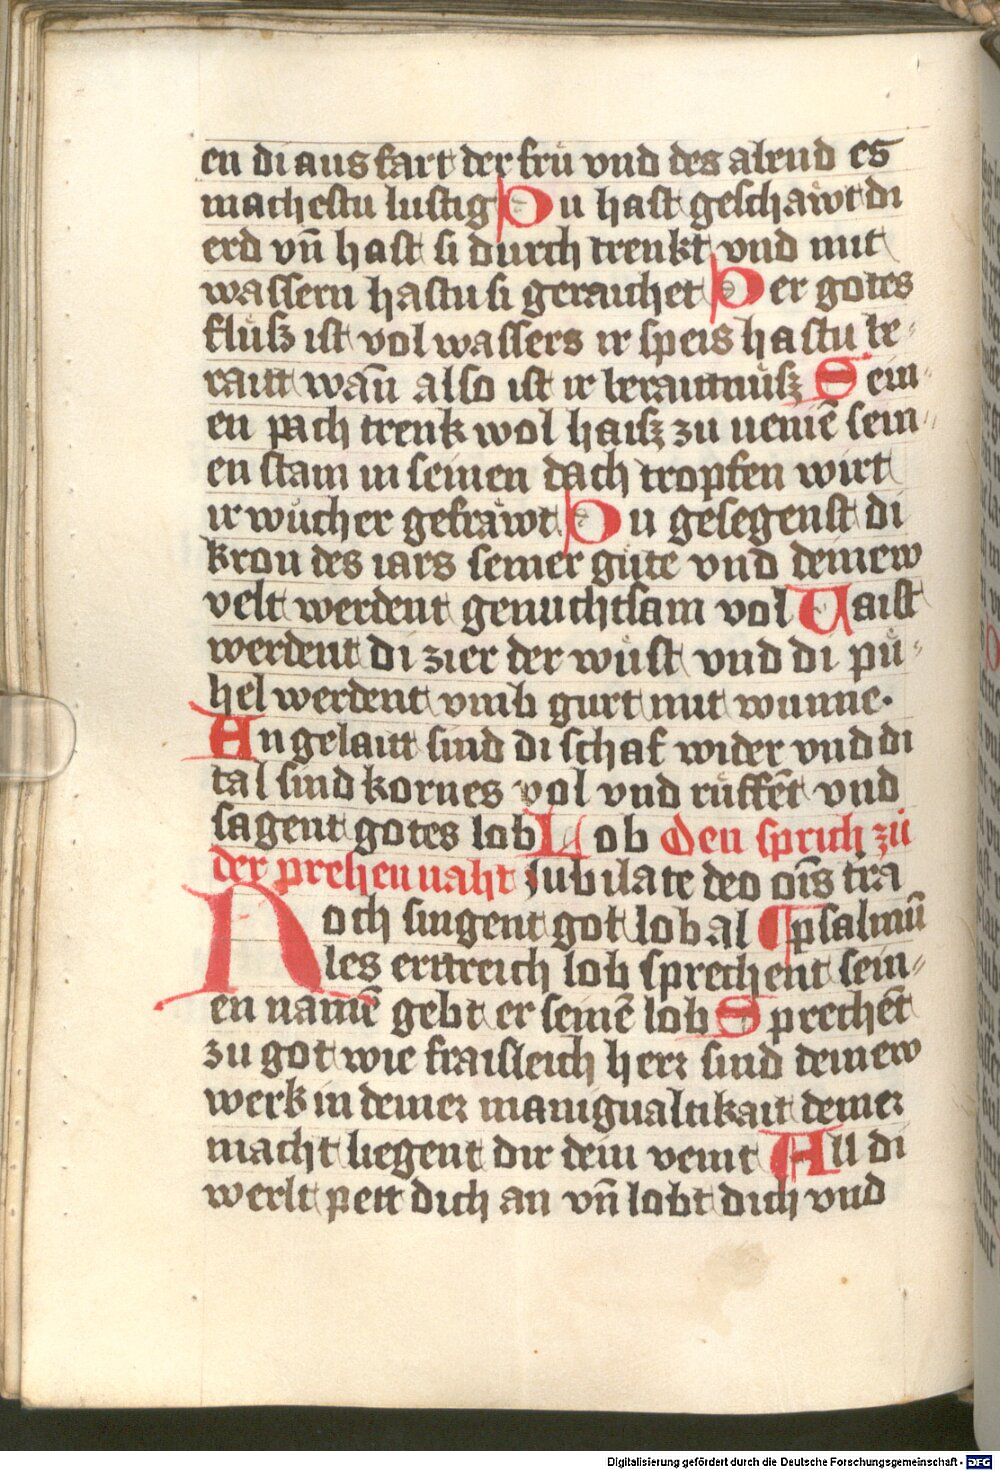 en di aus fart der frů vnd des abend es
machestu lustig Du hast geschawt di
erd vn̄ hast si durch trenkt vnd mit
wassern hastu si gereichet Der gotes
flůsz ist vol wassers ir speis hastu be⸗
rait wan̄ also ist ir beraitnůsz Sein⸗
en pach trenk wol haisz zu neme͞ sein⸗
en stam in seinen dach tropfen wirt
ir wůcher gefrāwt Du gesegenst di
kron des iars seiner gůte vnd deinew
velt werdent genuchtsam vol Vaist
werdent di zier der wůst vnd di pů⸗
hel werdent vmb gurt mit wunne.
An gelait sind di schaf wider vnd di
tal sind kornes vol vnd růffēt vnd
sagent gotes lob Lob Den spruch zů
der prehennaht Jubilate deo oīs tra
Noch singent got lob al psalmū
les ertreich lob sprechent sein⸗
en namē gebt er seinē lob Sprechēt
zu got wie fraisleich herr sind deinew
werk in deiner manigualtikait deiner
macht liegent dir dein veint All di
werlt pett dich an vn̄ lobt dich vnd
Digitalisierung gefördert durch die Deutsche Forschungsgemeinschaft - DFG